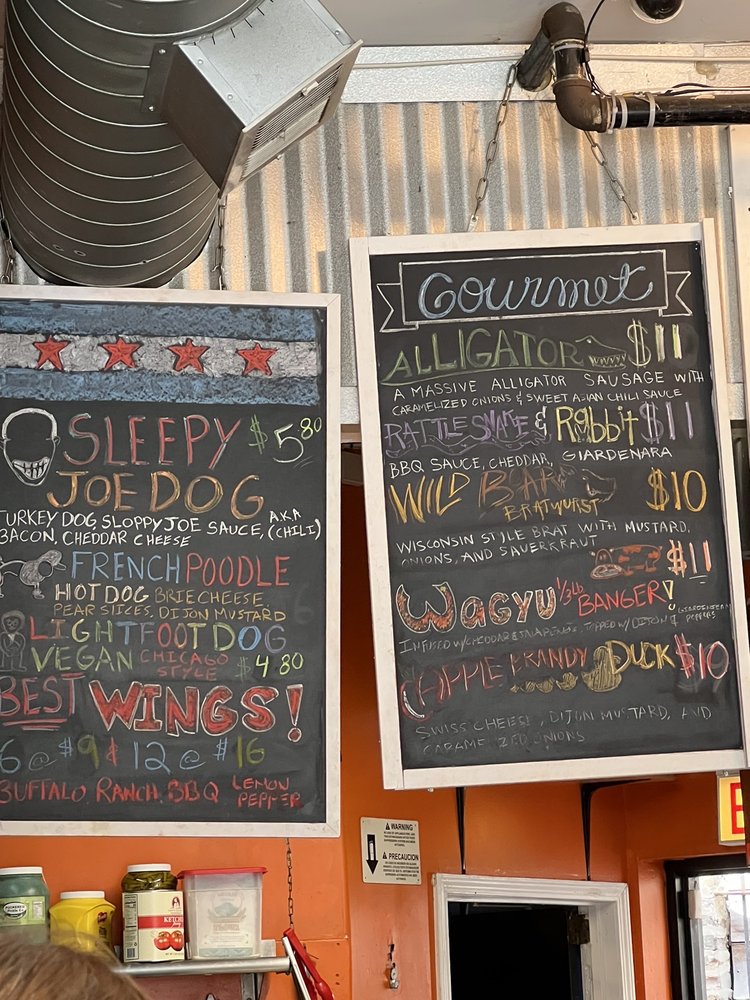 SLEEPY $5.80
JOE DOG
TURKEY DOG, SLOPPY JOE SAUCE, A.K.A
BACON, CHEDDAR CHEESE (CHILI)
FRENCH POODLE
HOT DOG BRIE CHEESE,
PEAR SLICES, DIJON MUSTARD
LIGHTFOOT DOG
VEGAN CHICAGO STYLE $4.80
BEST WINGS!
6 @ $9 & 12 @ $16
BUFFALO RANCH BBQ LEMON PEPPER
Gourmet
ALLIGATOR $11
A MASSIVE ALLIGATOR SAUSAGE WITH
CARAMELIZED ONIONS & SWEET ASIAN CHILI SAUCE
RATTLESNAKE & Rabbit $11
BBQ SAUCE, CHEDDAR, GIARDENARA
WILD BOAR $10
BRATWURST
WISCONSIN STYLE BRAT WITH MUSTARD,
ONIONS, AND SAUERKRAUT
$11
WAGYU 1/3 LB BANGER!
INFUSED W/ CHEDDAR & JALAPENOS, TOPPED W/ DIJON & PEPPERS
APPLE BRANDY DUCK $10
SWISS CHEESE, DIJON MUSTARD, AND
CARAMELIZED ONIONS
WARNING
PRECAUCION
KETCHUP